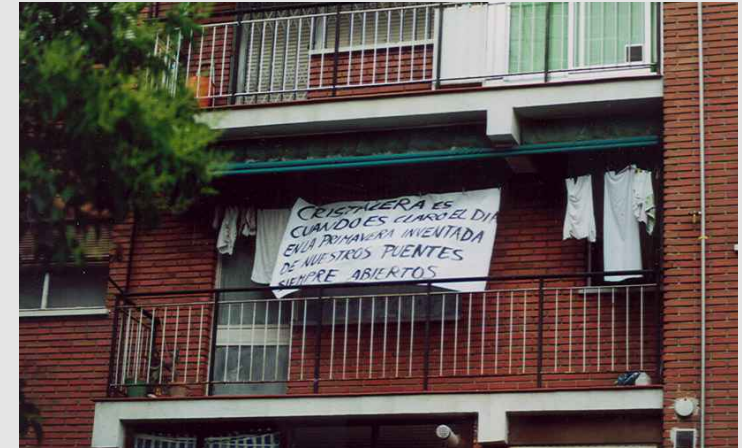 CRISTALERA ES
CUANDO ES CLARO EL DIA
EN LA PRIMAVERA INVENTADA
DE NUESTROS PUENTES
SIEMPRE ABIERTOS